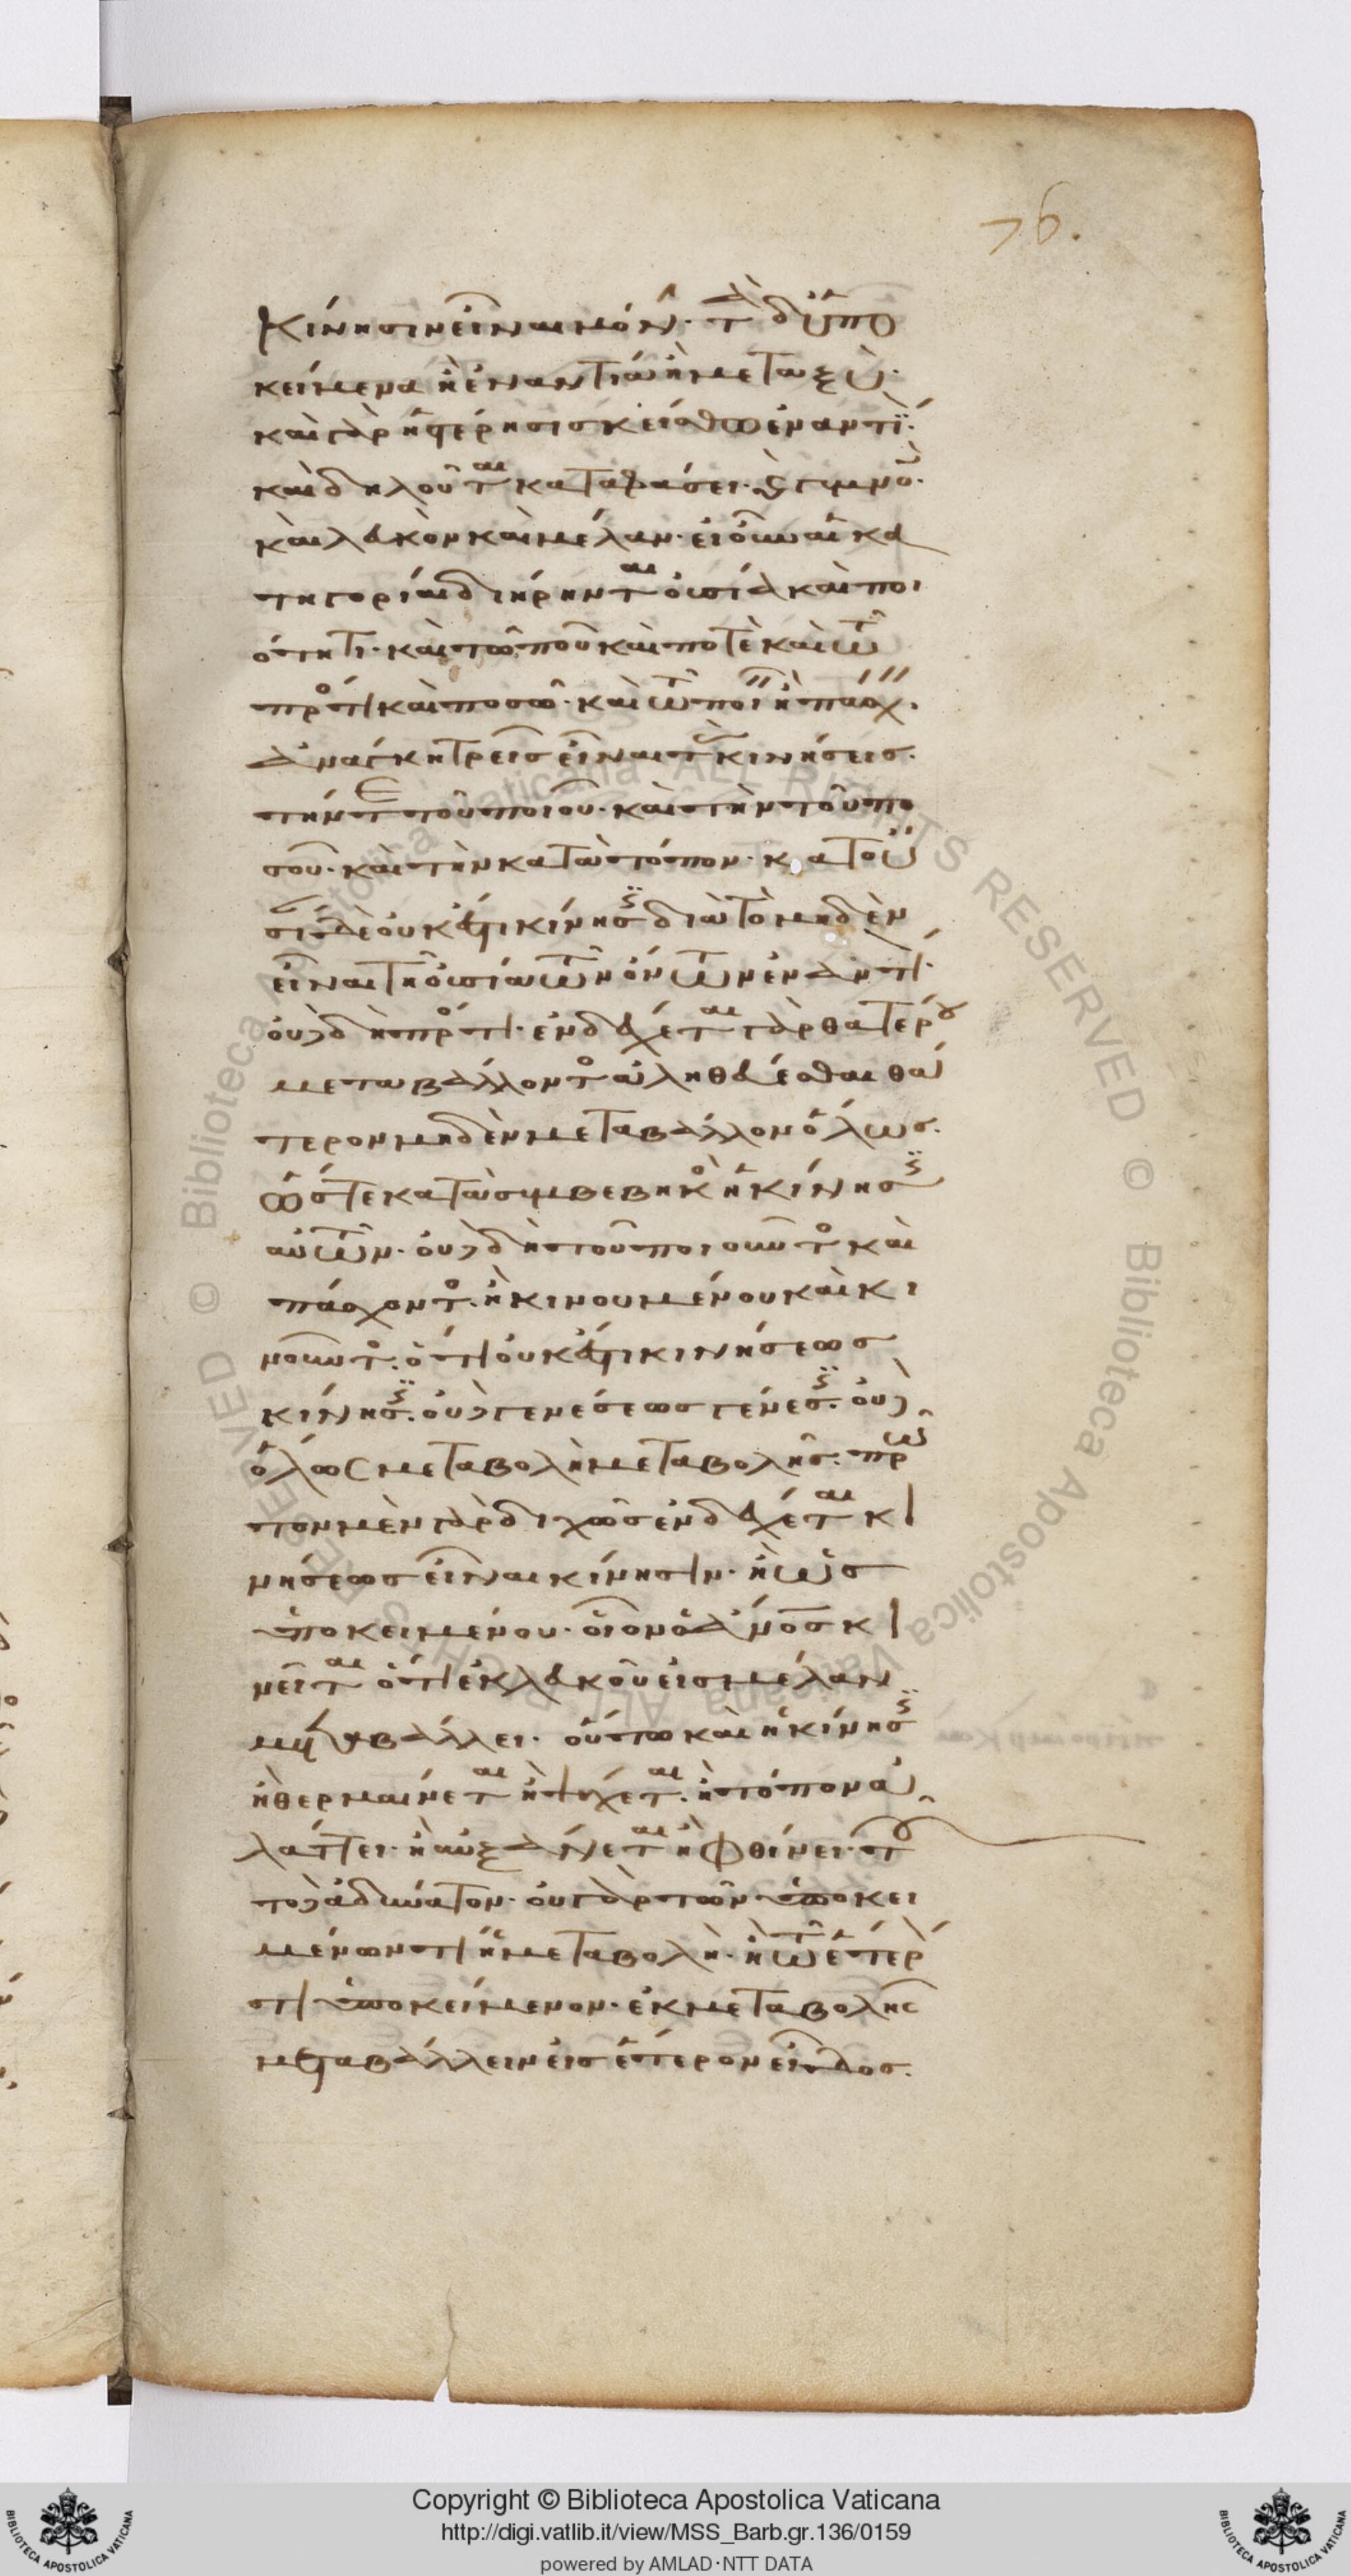 76.
κίνησιν εἶναι μόνην· τὰ δ' ὑπο
κείμενα ἢ ἐναντία ἢ μεταξύ·
καὶ γὰρ ἡ στέρησις κείσθω ἐναντίον·
καὶ δηλοῦται καταφάσει· γυμνὸν·
καὶ λευκὸν καὶ μέλαν· εἰ οὖν αἱ κα
τηγορίαι διήρηνται οὐσία καὶ ποι
ότητι· καὶ τῶ ποῦ καὶ ποτὲ καὶ τῶ
πρός τι καὶ ποσῶ· καὶ τῶ ποιεῖν ἢ πάσχειν·
ἀνάγκη τρεῖς εἶναι τὰς κινήσεις·
τήν τε τοῦ ποιοῦ· καὶ τὴν τοῦ πο
σοῦ· καὶ τὴν κατὰ τόπον· κατ' οὐ
σίαν δὲ οὐκ ἔστι κίνησις διὰ τὸ μηδὲν
εἶναι τῆ οὐσία τῶν ὄντων ἐναντίον·
οὐδὲ δὴ πρός τι· ἐνδέχεται γὰρ θατέρου
μεταβάλλοντος ἀληθεύεσθαι θά
τερον μηδὲν μεταβάλλον ὅλως·
ὥστε κατὰ συμβεβηκὸς ἡ κίνησις
αὐτῶν· οὐδὲ δὴ τοῦ ποιοῦντος καὶ
πάσχοντος· ἢ κινουμένου καὶ κι
νοῦντος· ὅτι οὐκ ἔστι κινήσεως
κίνησις· οὐδὲ γενέσεως γένεσις· οὐδ'
ὅλως μεταβολὴ μεταβολῆς· πρῶ
τον μὲν γὰρ διχῶς ἐνδέχεται κι
νήσεως εἶναι κίνησιν· ἢ ὡς
ὑποκειμένου· οἷον ὁ ἄνος κι
νεῖται ὅτι ἐκ λευκοῦ εἰς μέλαν
μεταβάλλει· οὕτω καὶ ἡ κίνησις
ἢ θερμαίνεται ἢ ψύχεται· ἢ τόπον ἀλ
λάττει· ἢ αὐξάνεται ἢ φθίνει·
τοῦτο δὲ ἀδύνατον· οὐ γὰρ τῶν ὑποκει
μένων τι ἡ μεταβολὴ· ἢ τῶ ἕτερόν
τι ὑποκείμενον· ἐκ μεταβολῆς
μεταβάλλειν εἰς ἕτερον εἶδος·
© Biblioteca Apostolica Vaticana ALL RIGHTS RESERVED
Copyright © Biblioteca Apostolica Vaticana
http://digi.vatlib.it/view/MSS_Barb.gr.136/0159
powered by AMLAD·NTT DATA